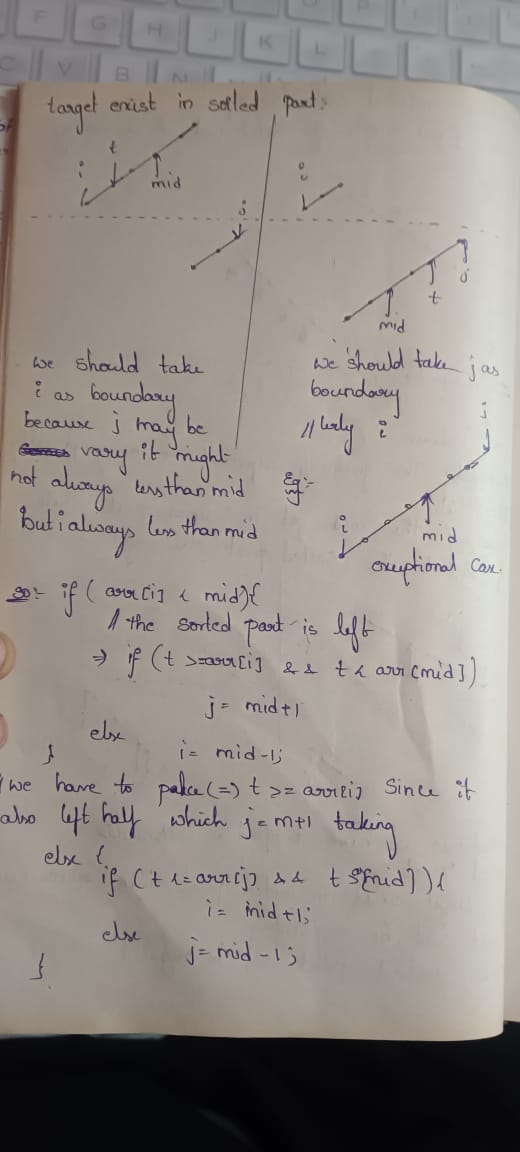 F G H J K L
C V B N
target exist in sorted part:
t
i
mid
j
i
mid
t
j
we should take
i as boundary
because j may be
vary it might
not always less than mid
but i always less than mid
we should take j as
boundary
//larly i
Eg:-
j
i
mid
exceptional Case.
so:- if ( arr[i] < mid){
// the sorted part is left
⇒ if (t >=arr[i] && t < arr[mid])
j = mid+1
else
i = mid-1;
}
we have to (=) t >= arr[i] since it
also left half which j=m+1 taking
else {
if (t <= arr[j] && t [mid]) {
i = mid+1;
else
j = mid-1;
}